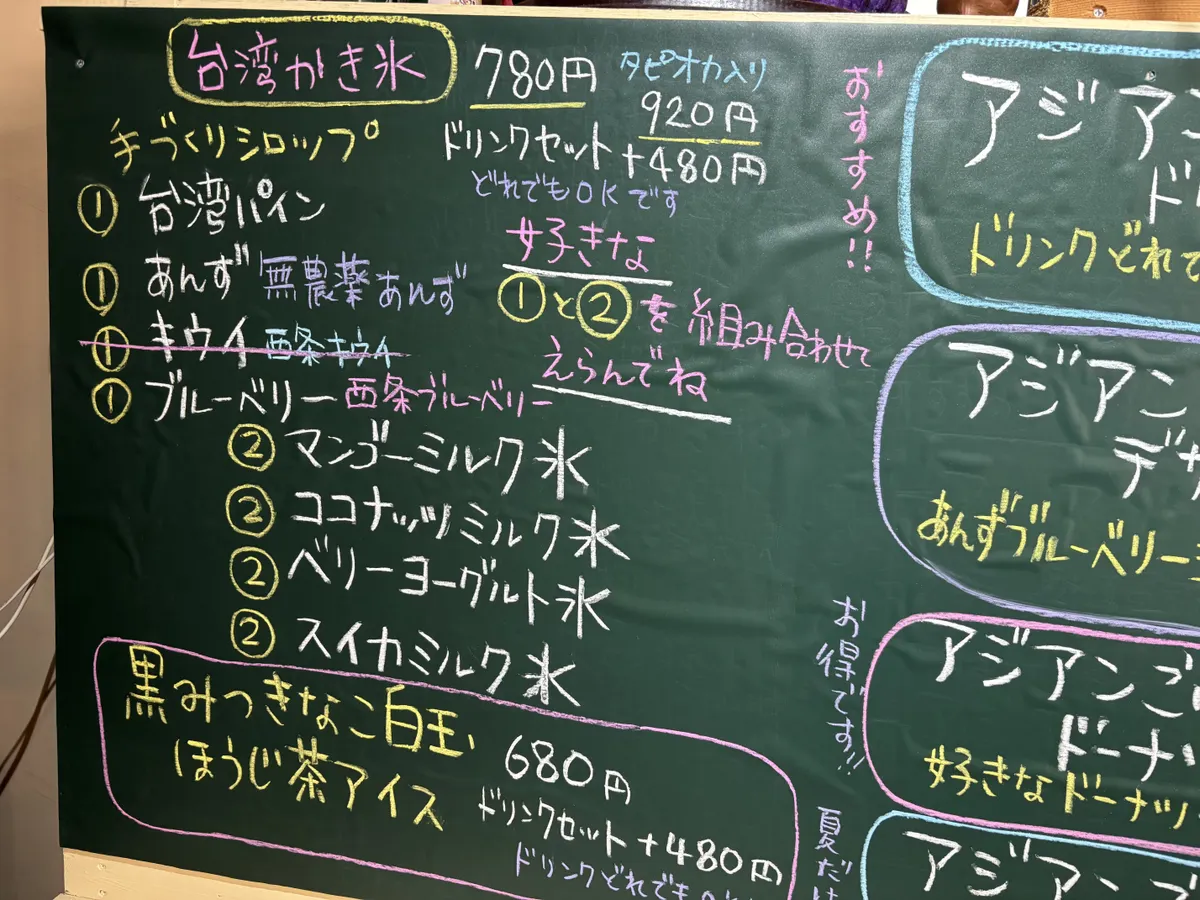 台湾かき氷 780円 タピオカ入り
920円
手づくりシロップ ドリンクセット +480円
どれでもOKです
① 台湾パイン
① あんず 無農薬あんず
① キウイ 西条キウイ
① ブルーベリー 西条ブルーベリー
好きな
①と②を組み合わせて
えらんでね
② マンゴーミルク氷
② ココナッツミルク氷
② ベリーヨーグルト氷
② スイカミルク氷
黒みつきなこ白玉
ほうじ茶アイス 680円
ドリンクセット +480円
ドリンクどれでもOK
おすすめ!!
アジア
ド
ドリンクどれで
アジアン
デザ
あんずブルーベリー
お得です!!
アジアンご
ドーナッ
好きなドーナッツ
夏だけ
アジアンご